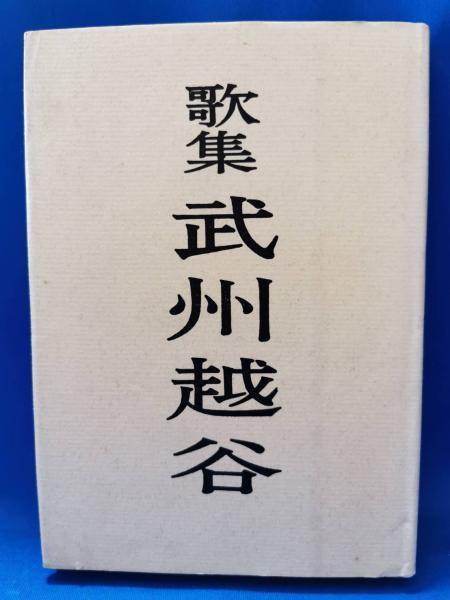 歌集 武州越谷